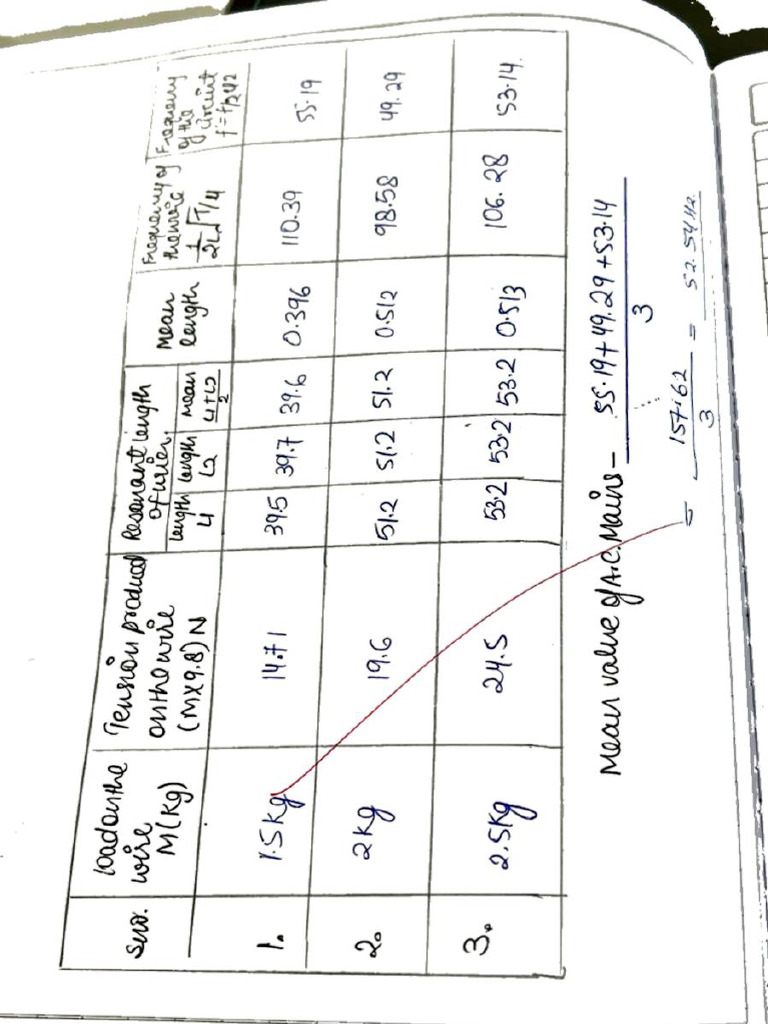 S.no.
Load on the
wire
M(Kg)
Tension produced
on the wire
(M×9.8) N
Resonant length
of wire.
length
L1
length
L2
mean
L1+L2
2
Mean
length
Frequency of
the wire
1
2L √T/μ
Frequency
of the
circuit
f = f/2 Hz
1. 1.5 Kg 14.71 39.5 39.7 39.6 0.396 110.39 55.19
2. 2 Kg 19.6 51.2 51.2 51.2 0.512 98.58 49.29
3. 2.5 Kg 24.5 53.2 53.2 53.2 0.513 106.28 53.14
Mean value of A.C. Mains – 55.19 + 49.29 + 53.14
3
= 157.62 = 52.54 Hz.
3